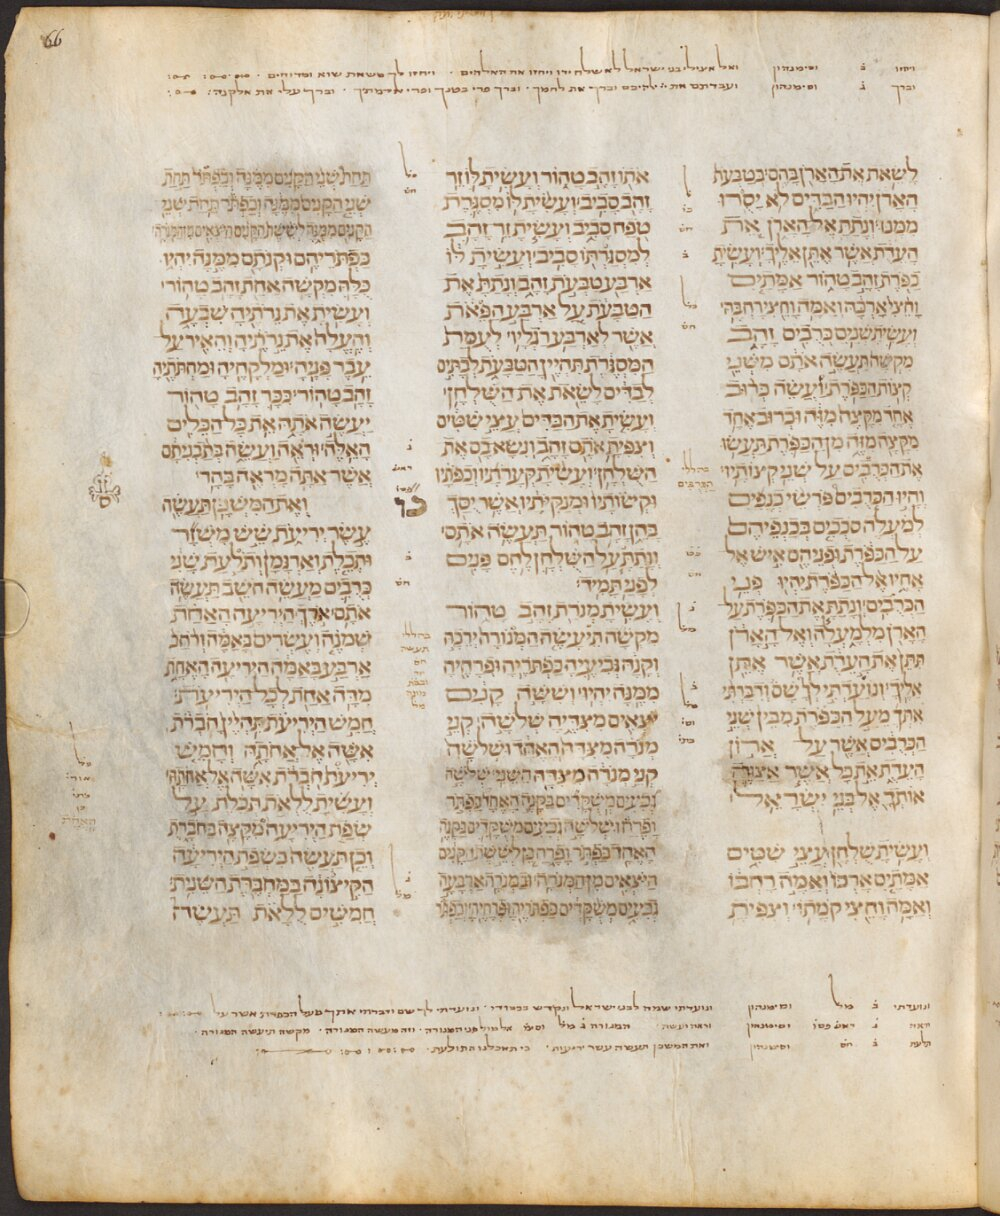 66
ויחזו ב וסימנהון ואל אצילי בני ישראל לא שלח ידו ויחזו את האלהים ׃ ויחזו לך משאת שוא ומדוחים ׃
וברך ג וסימנהון ועבדתם את ייי אלהיכם וברך את לחמך ׃ וברך פרי בטנך ופרי אדמתך ׃ וברך עלי את אלקנה ׃
לשאת את הארן בהם׃ בטבעת
הארן יהיו הבדים לא יסרו
ממנו׃ ונתת אל הארן את
העדת אשר אתן אליך׃ ועשית
כפרת זהב טהור אמתים
וחצי ארכה ואמה וחצי רחבה׃
ועשית שנים כרבים זהב
מקשה תעשה אתם משני
קצות הכפרת׃ ועשה כרוב
אחד מקצה מזה וכרוב אחד
מקצה מזה מן הכפרת תעשו
את הכרבים על שני קצותיו׃
והיו הכרבים פרשי כנפים
למעלה סככים בכנפיהם
על הכפרת ופניהם איש אל
אחיו אל הכפרת יהיו פני
הכרבים׃ ונתת את הכפרת על
הארן מלמעלה ואל הארן
תתן את העדת אשר אתן
אליך׃ ונועדתי לך שם ודברתי
אתך מעל הכפרת מבין שני
הכרבים אשר על ארון
העדת את כל אשר אצוה
אותך אל בני ישראל׃
ועשית שלחן עצי שטים
אמתים ארכו ואמה רחבו
ואמה וחצי קמתו׃ וצפית
אתו זהב טהור ועשית לו זר
זהב סביב׃ ועשית לו מסגרת
טפח סביב ועשית זר זהב
למסגרתו סביב׃ ועשית לו
ארבע טבעת זהב ונתת את
הטבעת על ארבע הפאת
אשר לארבע רגליו׃ לעמת
המסגרת תהיין הטבעת לבתים
לבדים לשאת את השלחן׃
ועשית את הבדים עצי שטים
וצפית אתם זהב ונשא בם את
השלחן׃ ועשית קערתיו וכפתיו
וקשותיו ומנקיתיו אשר יסך
בהן זהב טהור תעשה אתם׃
ונתת על השלחן לחם פנים
לפני תמיד׃
ועשית מנרת זהב טהור
מקשה תיעשה המנורה ירכה
וקנה גביעיה כפתריה ופרחיה
ממנה יהיו׃ וששה קנים
יצאים מצדיה שלשה קני
מנרה מצדה האחד ושלשה
קני מנרה מצדה השני׃ שלשה
גביעים משקדים בקנה האחד כפתר
ופרח ושלשה גביעים משקדים בקנה
האחד כפתר ופרח כן לששת הקנים
היצאים מן המנרה׃ ובמנרה ארבעה
גביעים משקדים כפתריה ופרחיה׃ וכפתר
תחת שני הקנים ממנה וכפתר תחת
שני הקנים ממנה וכפתר תחת שני
הקנים ממנה לששת הקנים היצאים מן המנרה׃
כפתריהם וקנתם ממנה יהיו
כלה מקשה אחת זהב טהור׃
ועשית את נרתיה שבעה
והעלה את נרתיה והאיר על
עבר פניה׃ ומלקחיה ומחתתיה
זהב טהור׃ ככר זהב טהור
יעשה אתה את כל הכלים
האלה׃ וראה ועשה בתבניתם
אשר אתה מראה בהר׃
ואת המשכן תעשה
עשר יריעת שש משזר
ותכלת וארגמן ותלעת שני
כרבים מעשה חשב תעשה
אתם׃ ארך היריעה האחת
שמנה ועשרים באמה ורחב
ארבע באמה היריעה האחת
מדה אחת לכל היריעת׃
חמש היריעת תהיין חברת
אשה אל אחתה וחמש
יריעת חברת אשה אל אחתה׃
ועשית ללאת תכלת על
שפת היריעה מקצה בחברת
וכן תעשה בשפת היריעה
הקיצונה במחברת השנית׃
חמשים ללאת תעשה
ונועדתי ב מל וסימנהון ונועדתי שמה לבני ישראל ונקדש בכבודי ׃ ונועדתי לך שם ודברתי אתך מעל הכפרת אשר על
וראה ג ראש פסו וסימנהון וראה ועשה ׃ המנורה ג מל וסימ אל מול פני המנורה ׃ וזה מעשה המנורה ׃ מקשה תיעשה המנורה ׃
תלעת ב חס וסימנהון ואת המשכן תעשה עשר יריעות ׃ כי תאכלנו התולעת ׃